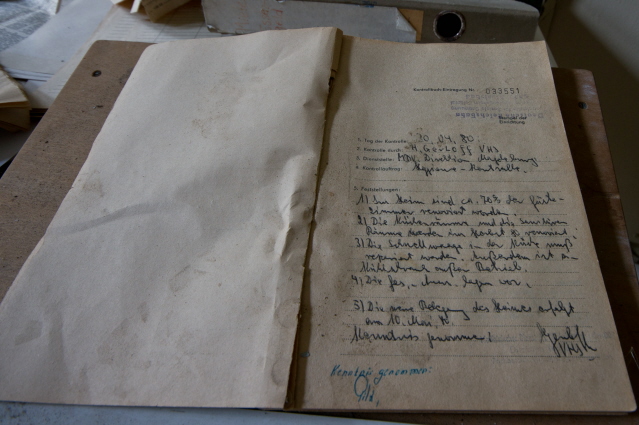 Kontrollbuch-Eintragung Nr. 033551
Stempel der
Einrichtung
1. Tag der Kontrolle: 10.04.80.
2. Kontrolle durch: H. VHS
3. Dienststelle: MDV, Direktion Magdeburg
4. Kontrollauftrag: Hygiene-Kontrolle.
5. Feststellungen:
1) Im Heim sind ca. 70% der Gäste-
zimmer renoviert worden.
2) Die Küchenräume und die sanitären
Räume werden im Herbst renoviert.
3) Die Schnellwaage in der Küche muß
repariert werden. Außerdem ist
Kühlschrank außer Betrieb.
4) Die lagen vor.
5) Die neue Belegung des Heimes erfolgt
am 10. Mai
Kenntnis genommen:
VHS
Kenntnis genommen: